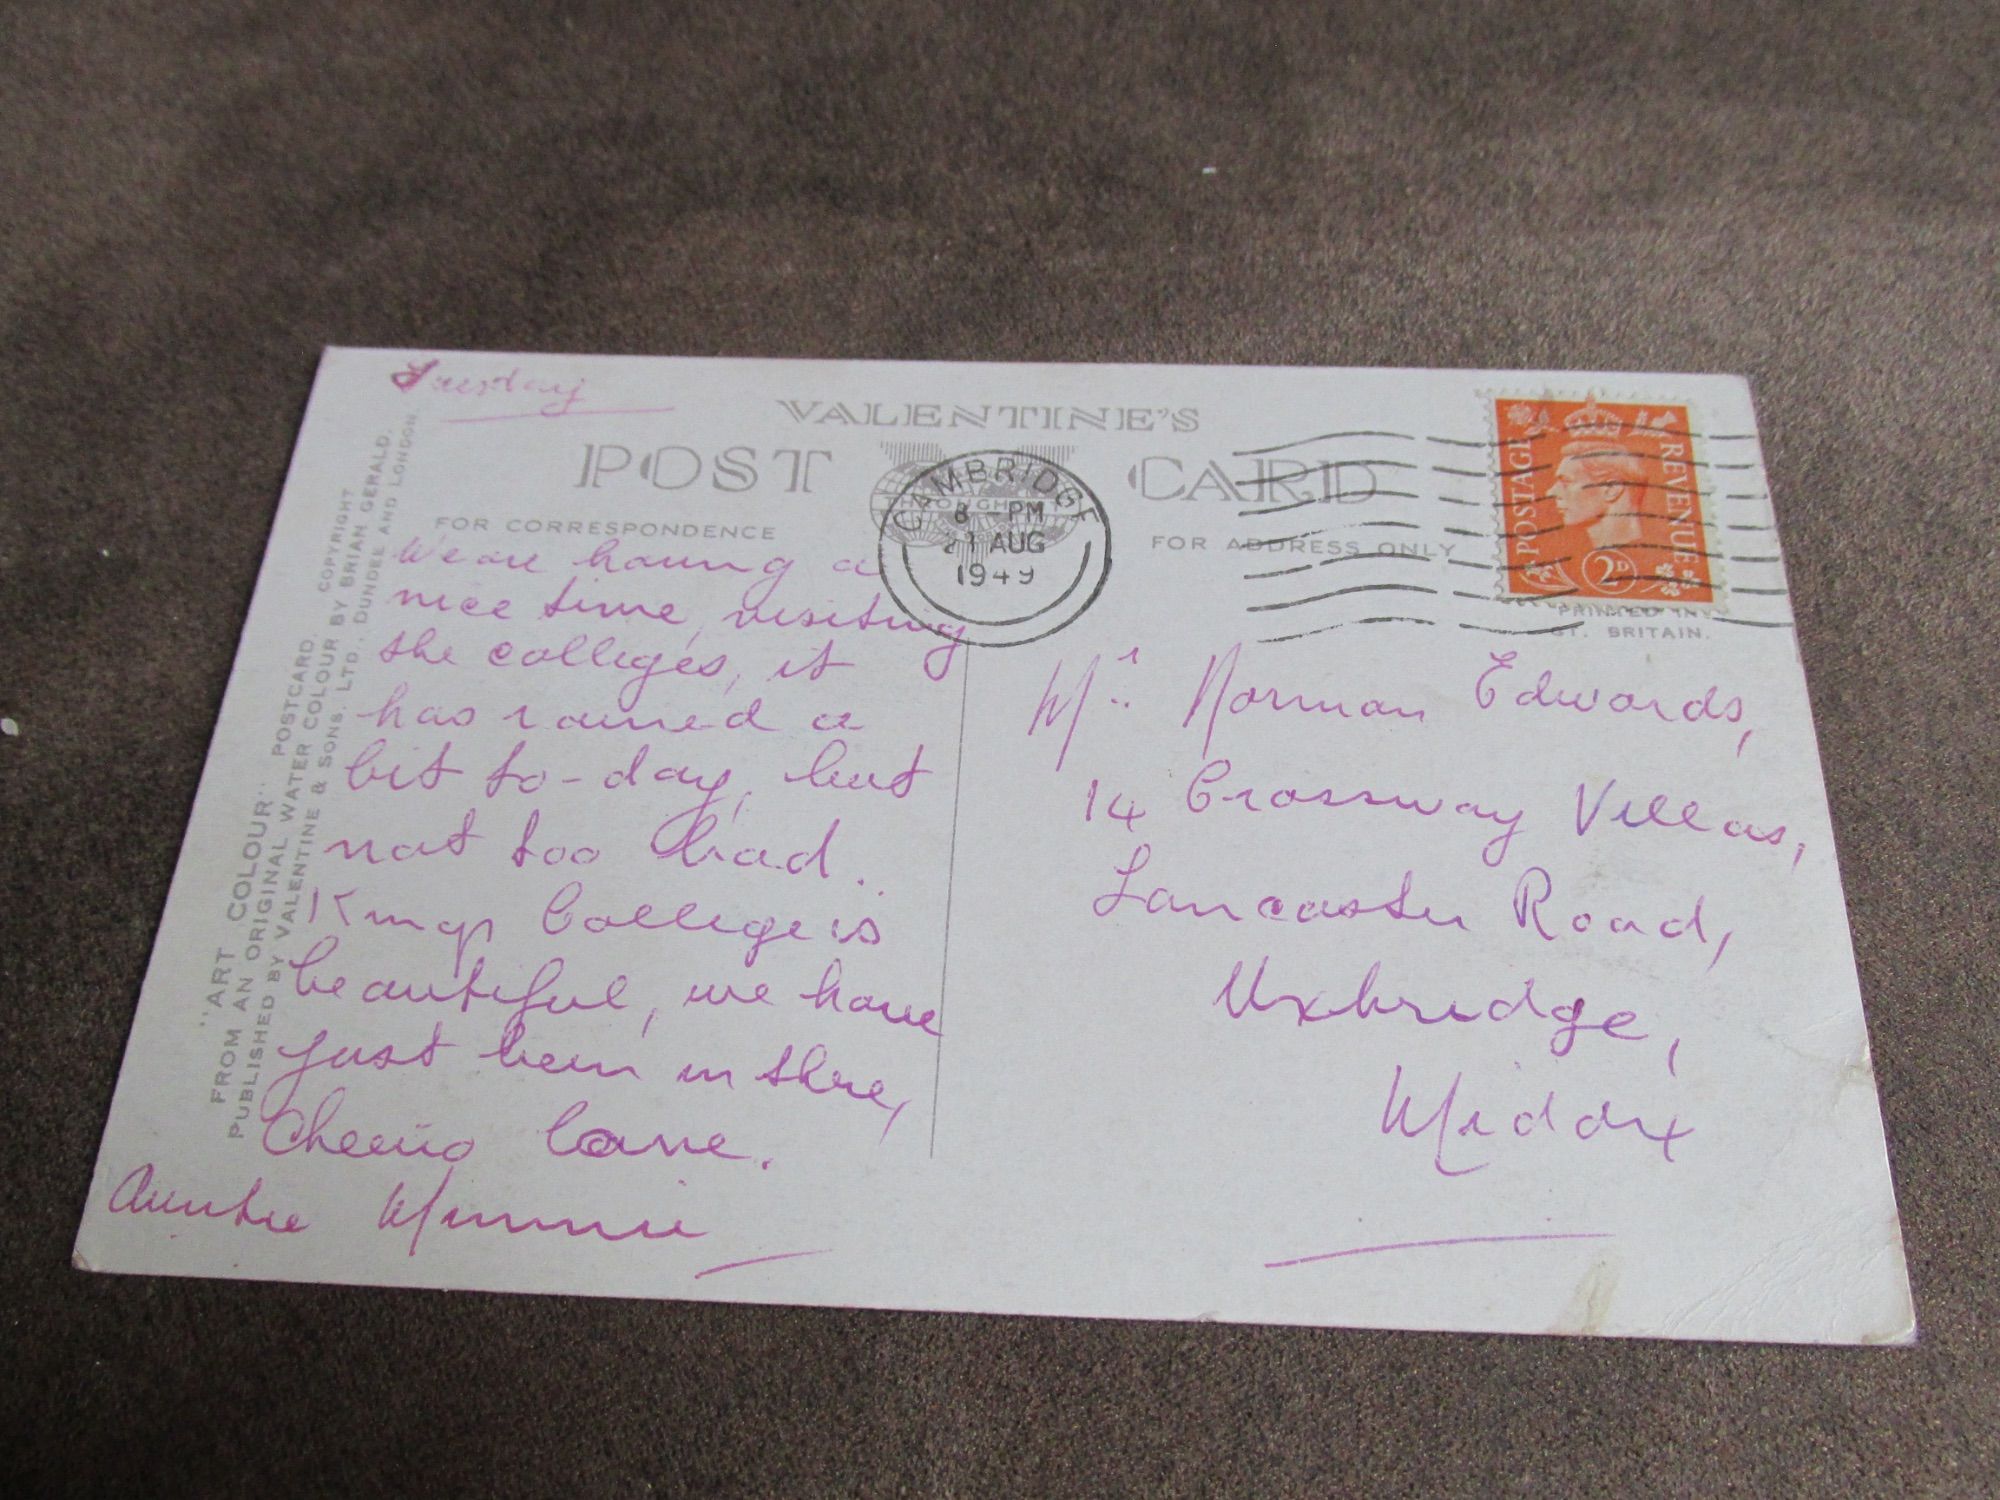 Tuesday
VALENTINE'S
POST CARD
FOR CORRESPONDENCE
FOR ADDRESS ONLY
CAMBRIDGE
8 - PM
AUG
1949
POSTAGE
REVENUE
2D
PRINTED IN
GT. BRITAIN.
We are having a
nice time, visiting
the colleges, it
has rained a
bit to-day, but
not too bad..
Kings College is
beautiful, we have
just been in there,
Cheerio
Auntie Minnie
Mr. Norman Edwards,
14 Crossway Villas,
Lancaster Road,
Uxbridge,
Middx
"ART COLOUR" POSTCARD.
FROM AN ORIGINAL WATER COLOUR BY BRIAN GERALD.
PUBLISHED BY VALENTINE & SONS, LTD., DUNDEE AND LONDON
COPYRIGHT